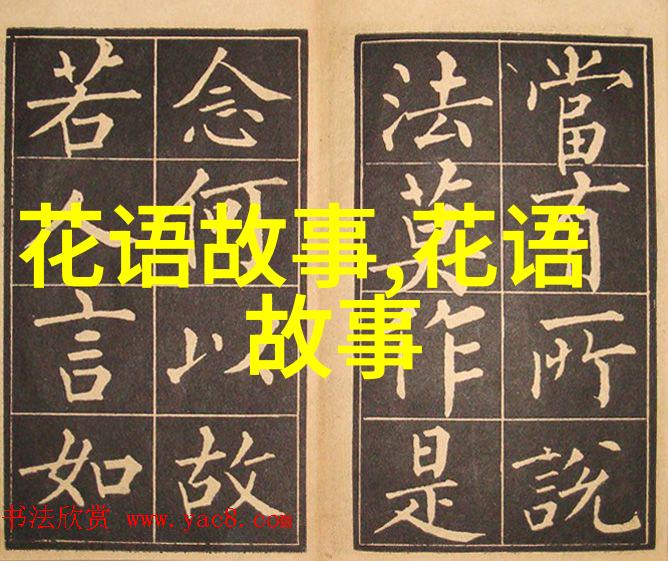 當有所說
法莫作是
念何以故
若人言如
花语故事,花语
故事
书法欣赏 www.yac8.com